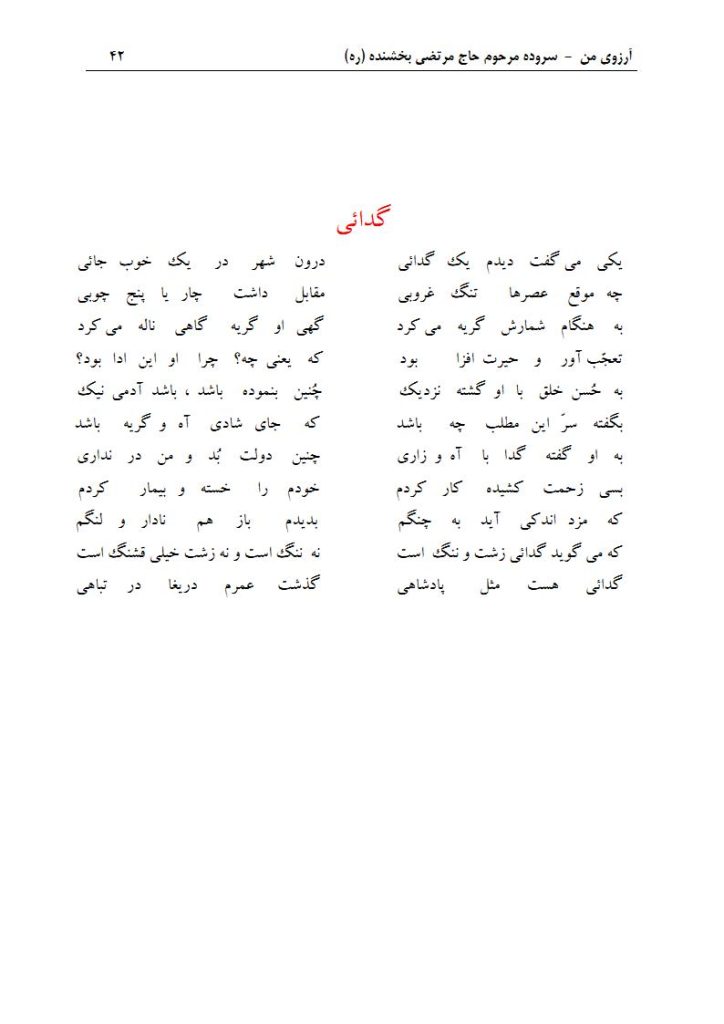 آرزوی من - سروده مرحوم حاج مرتضی بخشنده (ره) ۴۲
گدائی
یکی می گفت دیدم یک گدائی درون شهر در یک خوب جائی
چه موقع عصرها تنگ غروبی مقابل داشت چار یا پنج چوبی
به هنگام شمارش گریه می کرد گهی او گریه گاهی ناله می کرد
تعجّب آور و حیرت افزا بود که یعنی چه؟ چرا او این ادا بود؟
به حُسن خلق با او گشته نزدیک چُنین بنموده باشد ، باشد آدمی نیک
بگفته سرّ این مطلب چه باشد که جای شادی آه و گریه باشد
به او گفته گدا با آه و زاری چنین دولت بُد و من در نداری
بسی زحمت کشیده کار کردم خودم را خسته و بیمار کردم
که مزد اندکی آید به چنگم بدیدم باز هم نادار و لنگم
که می گوید گدائی زشت و ننگ است نه ننگ است و نه زشت خیلی قشنگ است
گدائی هست مثل پادشاهی گذشت عمرم دریغا در تباهی